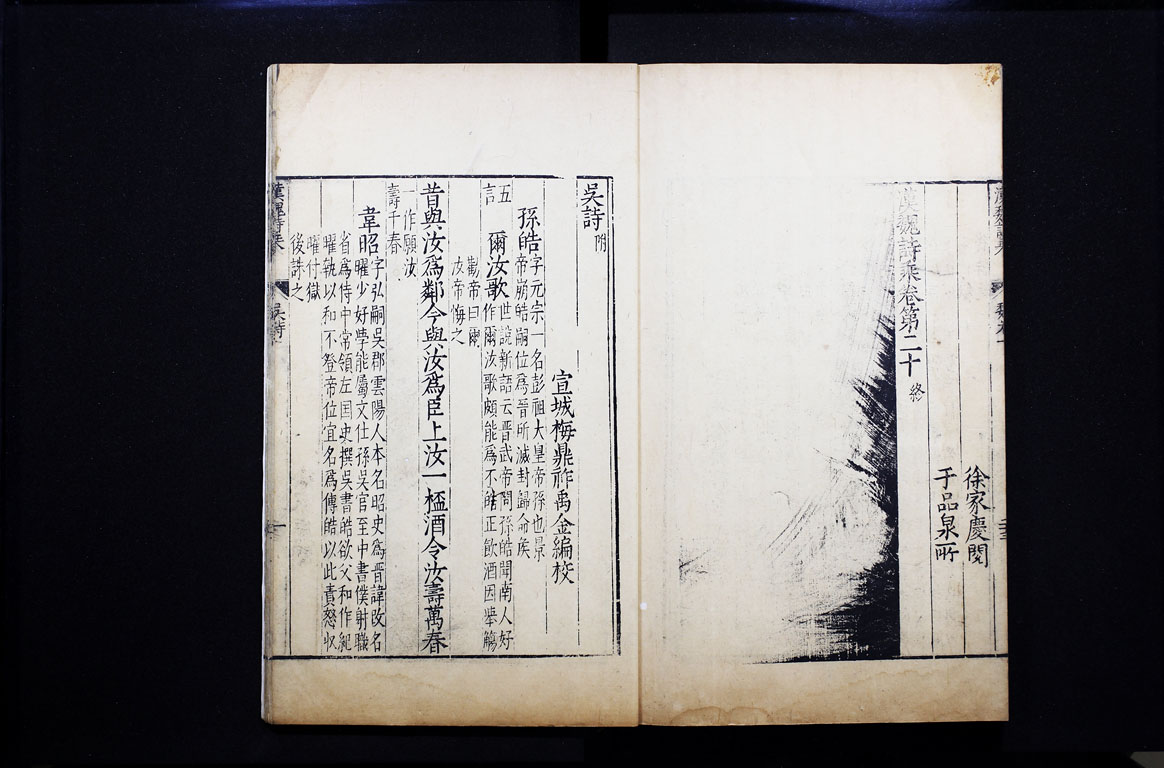 徐家慶閱
于品泉
漢魏詩乘卷第二十 終
吳詩 附
宣城梅鼎祚禹金編校
孫皓 字元宗一名彭祖大皇帝孫也景
帝崩皓嗣位爲晉所滅封歸命侯
五言 爾汝歌 世說新語云晉武帝問孫皓聞南人好
作爾汝歌頗能爲不皓正飲酒因舉觴
勸帝曰爾
汝帝悔之
昔與汝爲鄰今與汝爲臣上汝一桮酒令汝壽萬春
一作願汝
壽千春
韋昭 字弘嗣吳郡雲陽人本名昭史爲晉諱改名
曜少好學能屬文仕孫吳官至中書僕射職
省爲侍中常領左国史撰吳書皓欲父和作紀
曜執以和不登帝位宜名爲傳皓以此責怒収
曜付獄
後誅之
漢魏詩乘 吳詩 一